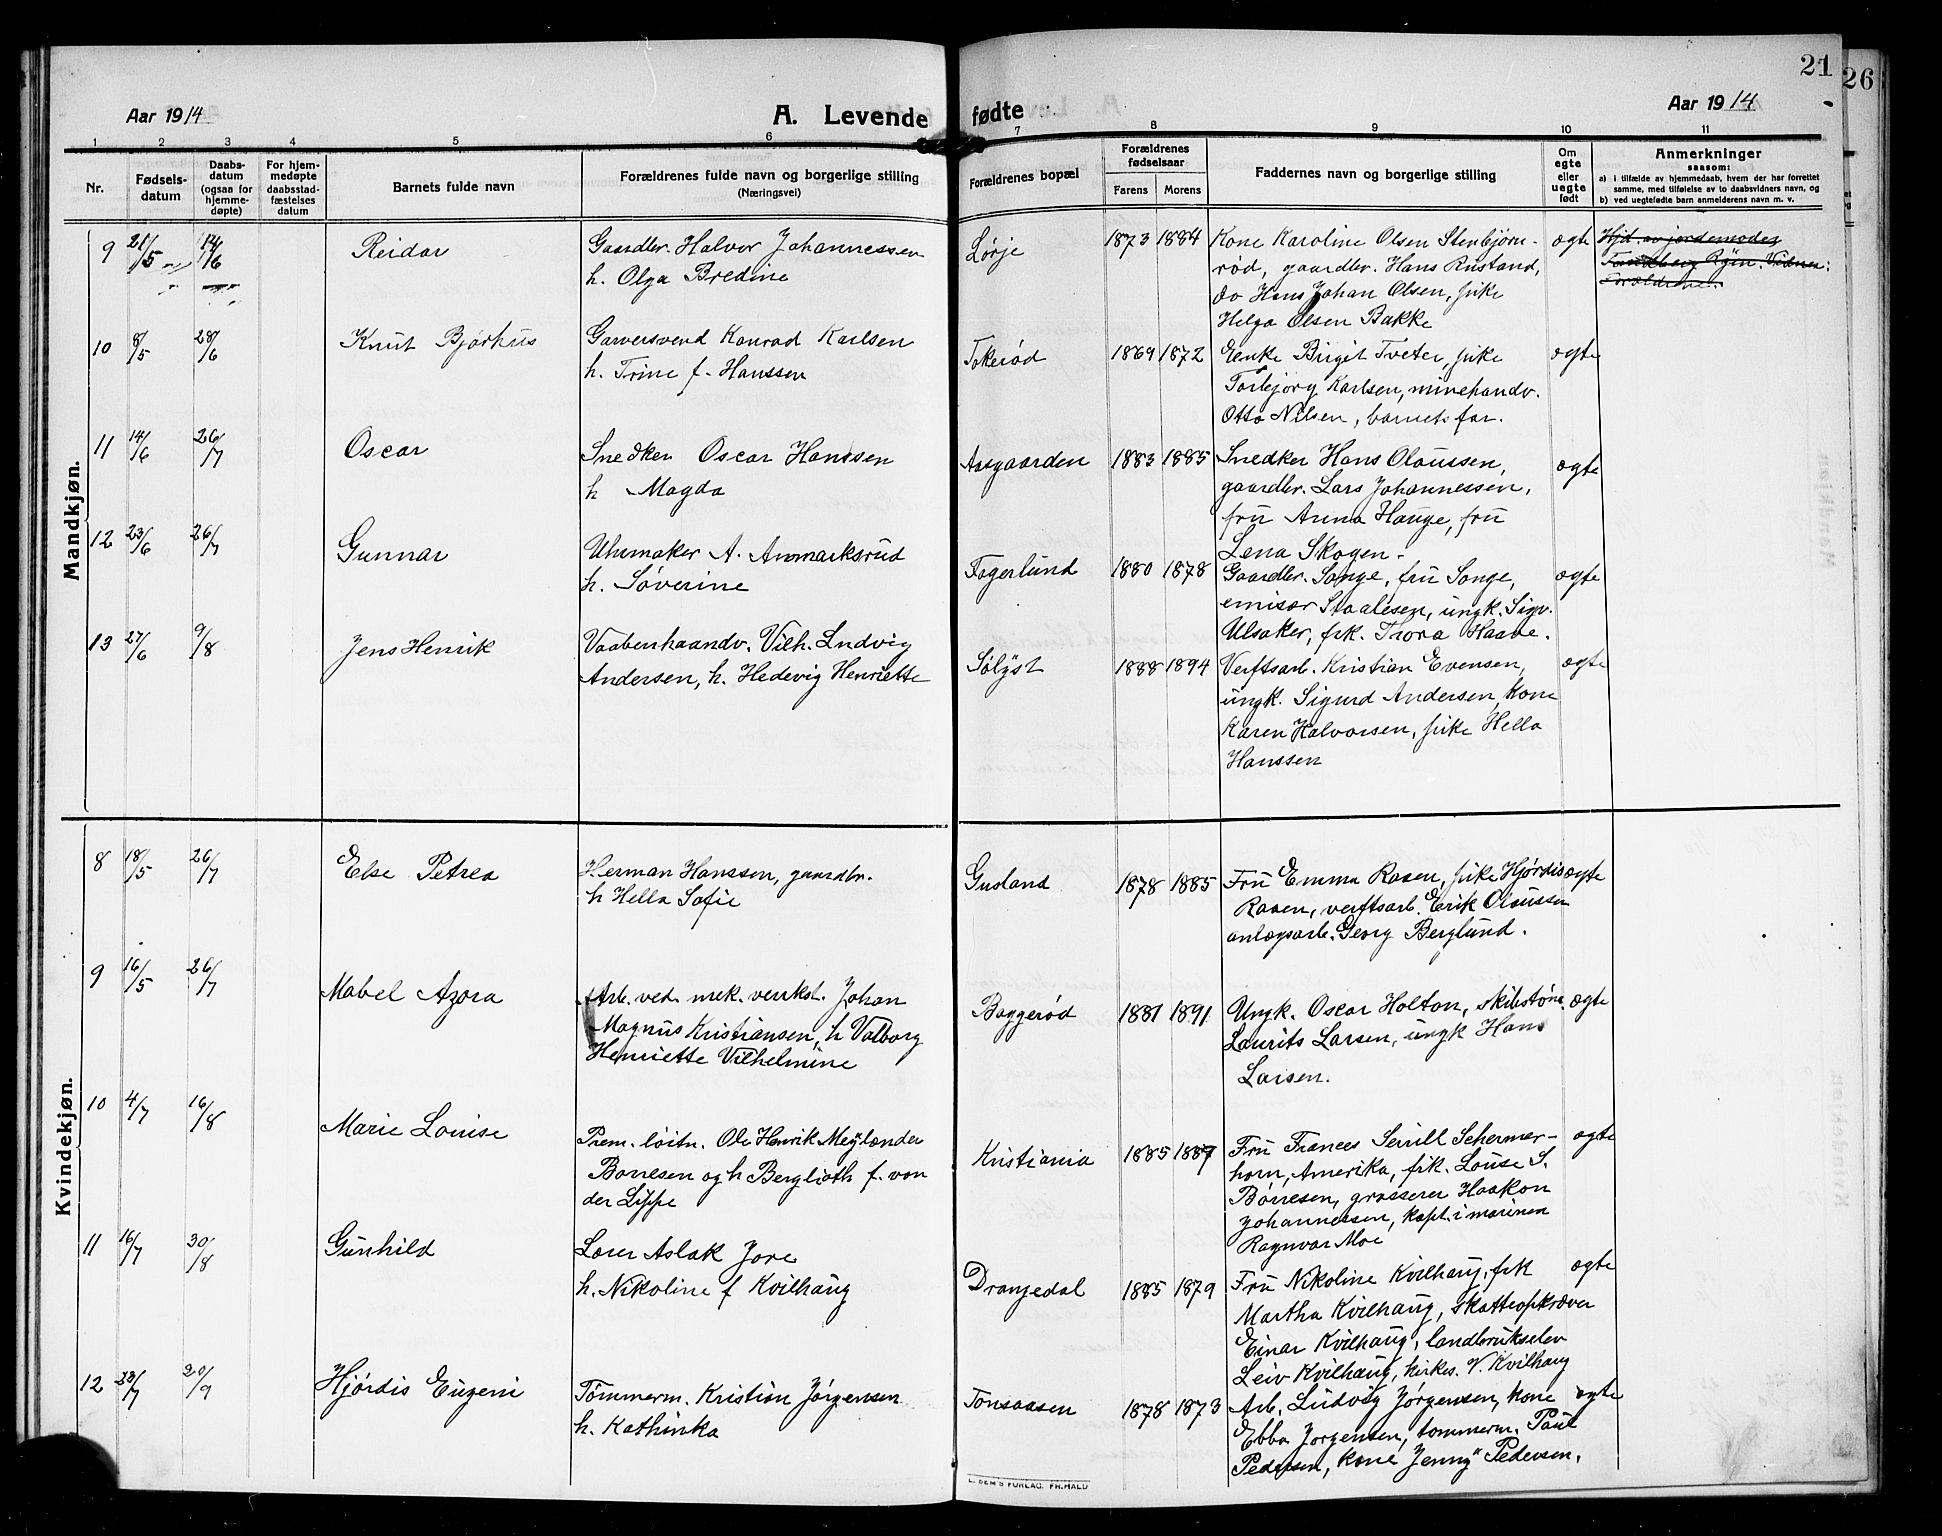 21
26
Aar 1914
A. Levende fødte
Aar 1914
1 2 3 4 5 6 7 8 9 10 11
Nr.
Fødsels-
datum
Daabs-
datum
(ogsaa for
hjemme-
døpte)
For hjem-
medøpte
daabsstad-
fæstelses
datum
Barnets fulde navn
Forældrenes fulde navn og borgerlige stilling
(Næringsvei)
Forældrenes bopæl
Forældrenes
fødselsaar
Farens Morens
Faddernes navn og borgerlige stilling
Om
egte
eller
uegte
født
Anmerkninger
saasom:
a) i tilfælde av hjemmedaab, hvem der har forrettet
samme, med tilføielse av to daabsvidners navn, og
b) ved uegtefødte barn anmelderens navn m. v.
Mandkjøn.
9 21/5 14/6 Reidar
Gaardbr. Halvor Johannessen
h. Olga Bredine
Lørje 1873 1884
Kone Karoline Olsen Stenbjørn-
rød, gaardbr. Hans Rustand,
do Hans Johan Olsen, pike
Helga Olsen Bakke
egte
Hjd. av jordemoder
Røin. Vidner:
Forældrene.
10 8/5 28/6 Knut Bjørhus
Garversvend Konrad Karlsen
h. Trine f. Hanssen
Tokerød 1869 1872
Enke Birgit Tveter, pike
Torbjørg Karlsen, minehandv.
Otto Nilsen, barnets far.
egte
11 14/6 26/7 Oscar
Snedker Oscar Hanssen
h Magda
Aasgaarden 1883 1885
Snedker Hans Olaussen,
gaardbr. Lars Johannessen,
fru Anna Hauge, fru
Lena Skogen -
egte
12 23/6 26/7 Gunnar
Uhrmaker A. Anmarksrud
h. Søverine
Fagerlund 1880 1878
Gaardbr. Songe, fru Songe,
emisær Staalesen, ungk. Sigv.
Ulsaker, frk. Thora Haave.
egte
13 27/6 9/8 Jens Henrik
Vaabenhaandv. Vilh. Ludvig
Andersen, h. Hedevig Henriette
Sølyst 1888 1894
Verftsarb. Kristian Evensen,
ungk. Sigurd Andersen, kone
Karen Halvorsen, pike Hella
Hanssen
egte
Kvindekjøn.
8 18/5 26/7 Else Petrea
Herman Hanssen, gaardbr.
h Hella Sofie
Gusland 1878 1885
Fru Emma Raaen, pike Hjørdis
Raaen, verftsarb. Erik Olaussen
anlægsarb. Georg Berglund.
egte
9 16/5 26/7 Mabel Azora
Arb. ved. mek. verkst. Johan
Magnus Kristiansen, h Valborg
Henriette Vilhelmine
Baggerød 1881 1891
Ungk. Oscar Holton, skibstøm.
Laurits Larsen, ungk Hans
Larsen.
egte
10 4/7 16/8 Marie Louise
Prem. løitn. Ole Henrik Meylænder
Børresen og h Bergljoth f. von
der Lippe
Kristiania 1885 1887
Fru Frances Serrill Schermer-
horn, Amerika, frk. Louse S.
Børresen, grosserer Haakon
Johannessen, kapt. i marinen
Ragnvar Moe
egte
11 16/7 30/8 Gunhild
Lærer Aslak Jore
h. Nikoline f Kvilhaug
Drangedal 1885 1879
Fru Nikoline Kvilhaug, frk
Martha Kvilhaug, skatteopkræver
Einar Kvilhaug, landbrukselev
Leiv Kvilhaug, kirkes. V. Kvilhaug
egte
12 23/7 20/9 Hjørdis Eugeni
Tømmerm. Kristian Jørgensen
h. Kathinka
Tonsaasen 1878 1873
Arb. Ludvig Jørgensen, kone
Ebba Jørgensen, tømmerm. Paul
Pedersen, kone Jenny Pedersen.
egte
FORLAG. FR.HALD